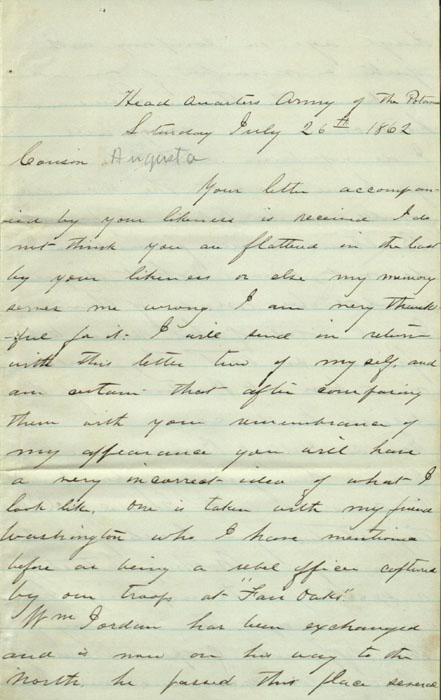 Head Quarters Army of the Potom
Saturday July 26th 1862
Cousin Augusta
Your letter accompan-
ied by your likeness is received I do
not think you are flattered in the least
by your likeness or else my memory
serves me wrong. I am very thank-
ful for it. I will send in return
with this letter two of myself, and
am certain that after comparing
them with your remembrance of
my appearance you will have
a very incorrect idea of what I
look like, one is taken with my friend
Washington who I have mentioned
before as being a rebel officer captured
by our troops at "Fair Oaks"
Wm Jordan has been exchanged
and is now on his way to the
North, he passed this place several